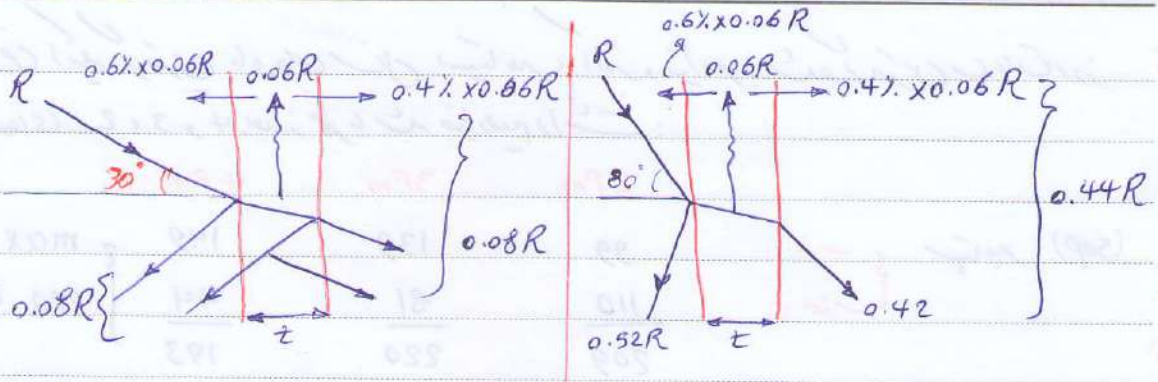 0.6% × 0.06R
R
0.06R
0.4% × 0.06R
30°
0.08R
0.08R
t
0.6% × 0.06R
R
0.06R
0.4% × 0.06R
80°
0.44R
0.42
0.52R
t